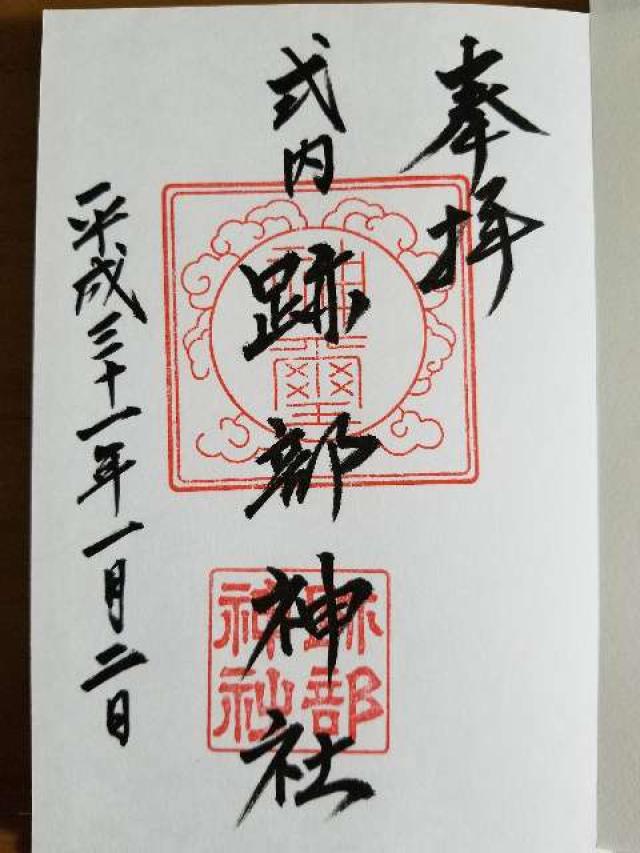 奉拝
式内 跡部神社
平成三十一年一月二日
神璽
跡部
神社